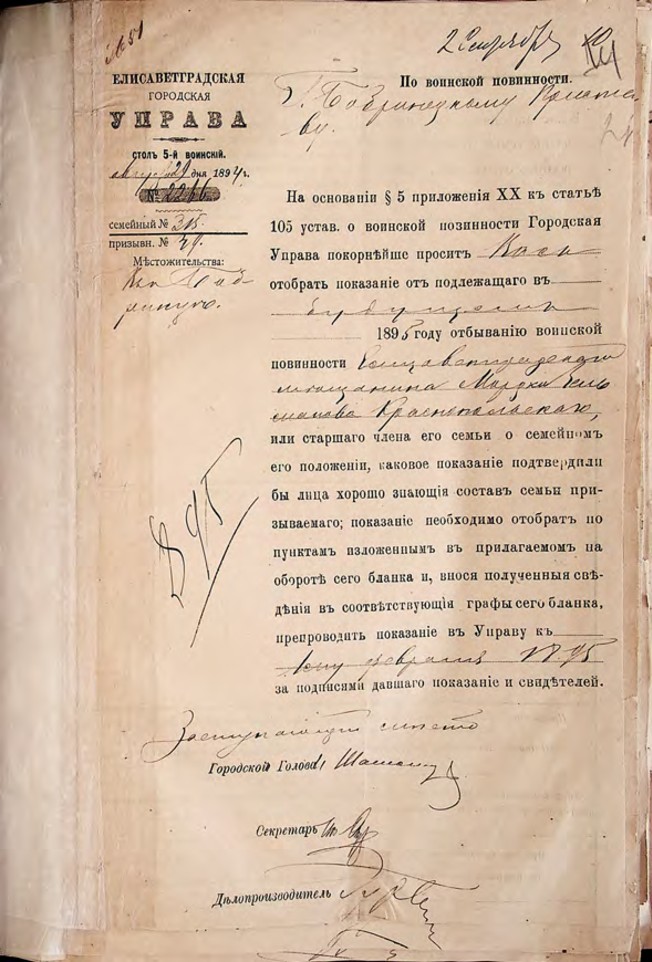 № 51
2 Сентября
ЕЛИСАВЕТГРАДСКАЯ
ГОРОДСКАЯ
УПРАВА
СТОЛЪ 5-й ВОИНСКІЙ.
августа 29 дня 1894 г.
№ 2266
семейный № 315
призывн. № 39.
Мѣстожительства:
По воинской повинности.
Г. Бобринецкому
На основаніи § 5 приложенія XX къ статьѣ
105 устав. о воинской позинности Городская
Управа покорнѣйше проситъ Васъ
отобрать показаніе отъ подлежащаго въ
будущемъ
1895 году отбыванію воинской
повинности Елисаветградскаго
мѣщанина Мордки
Краснопольскаго,
или старшаго члена его семьи о семейномъ
его положеніи, каковое показаніе подтвердили
бы лица хорошо знающія составъ семьи при-
зываемаго; показаніе необходимо отобрать по
пунктамъ изложеннымъ въ прилагаемомъ на
оборотѣ сего бланка и, внося полученныя свѣ-
дѣнія въ соотвѣтствующія графы сего бланка,
препроводить показаніе въ Управу къ
1му февраля 1895
за подписями давшаго показаніе и свидѣтелей.
Заступающій мѣсто
Городской Голова
Секретарь
Дѣлопроизводитель